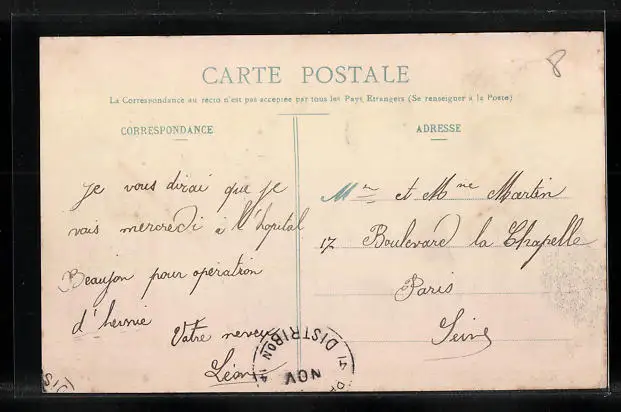 8
CARTE POSTALE
La Correspondance au recto n'est pas acceptée par tous les Pays Etrangers (Se renseigner à la Poste)
CORRESPONDANCE
ADRESSE
Je vous dirai que je
vais mercredi à l'hopital
Beaujon pour opération
d'hernie
Votre neveu
Léon
Mr et Mme Martin
17 Boulevard la Chapelle
Paris
Seine
DISTRIBON
NOV